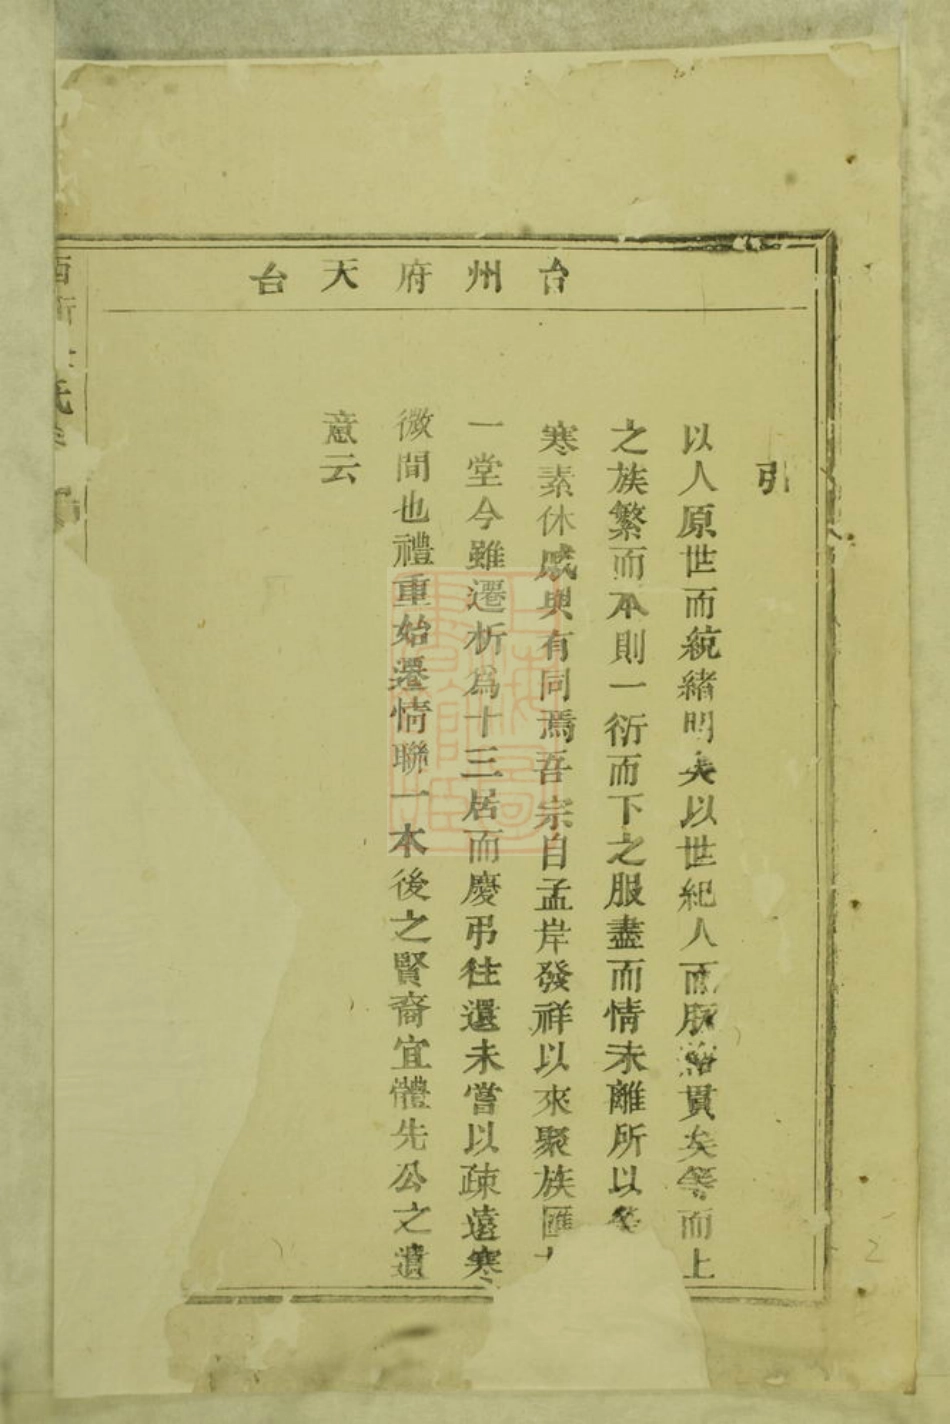 台州府天台
引
以人原世而統緒明矣以世紀人而脉絡貫矣等而上
之族繁而本則一衍而下之服盡而情未離所以
寒素休戚與有同焉吾宗自孟岸發祥以來聚族匯
一堂今雖遷析爲十三居而慶弔往還未嘗以疎遠寒
微間也禮重始遷情聯一本後之賢裔宜體先公之遺
意云
氏